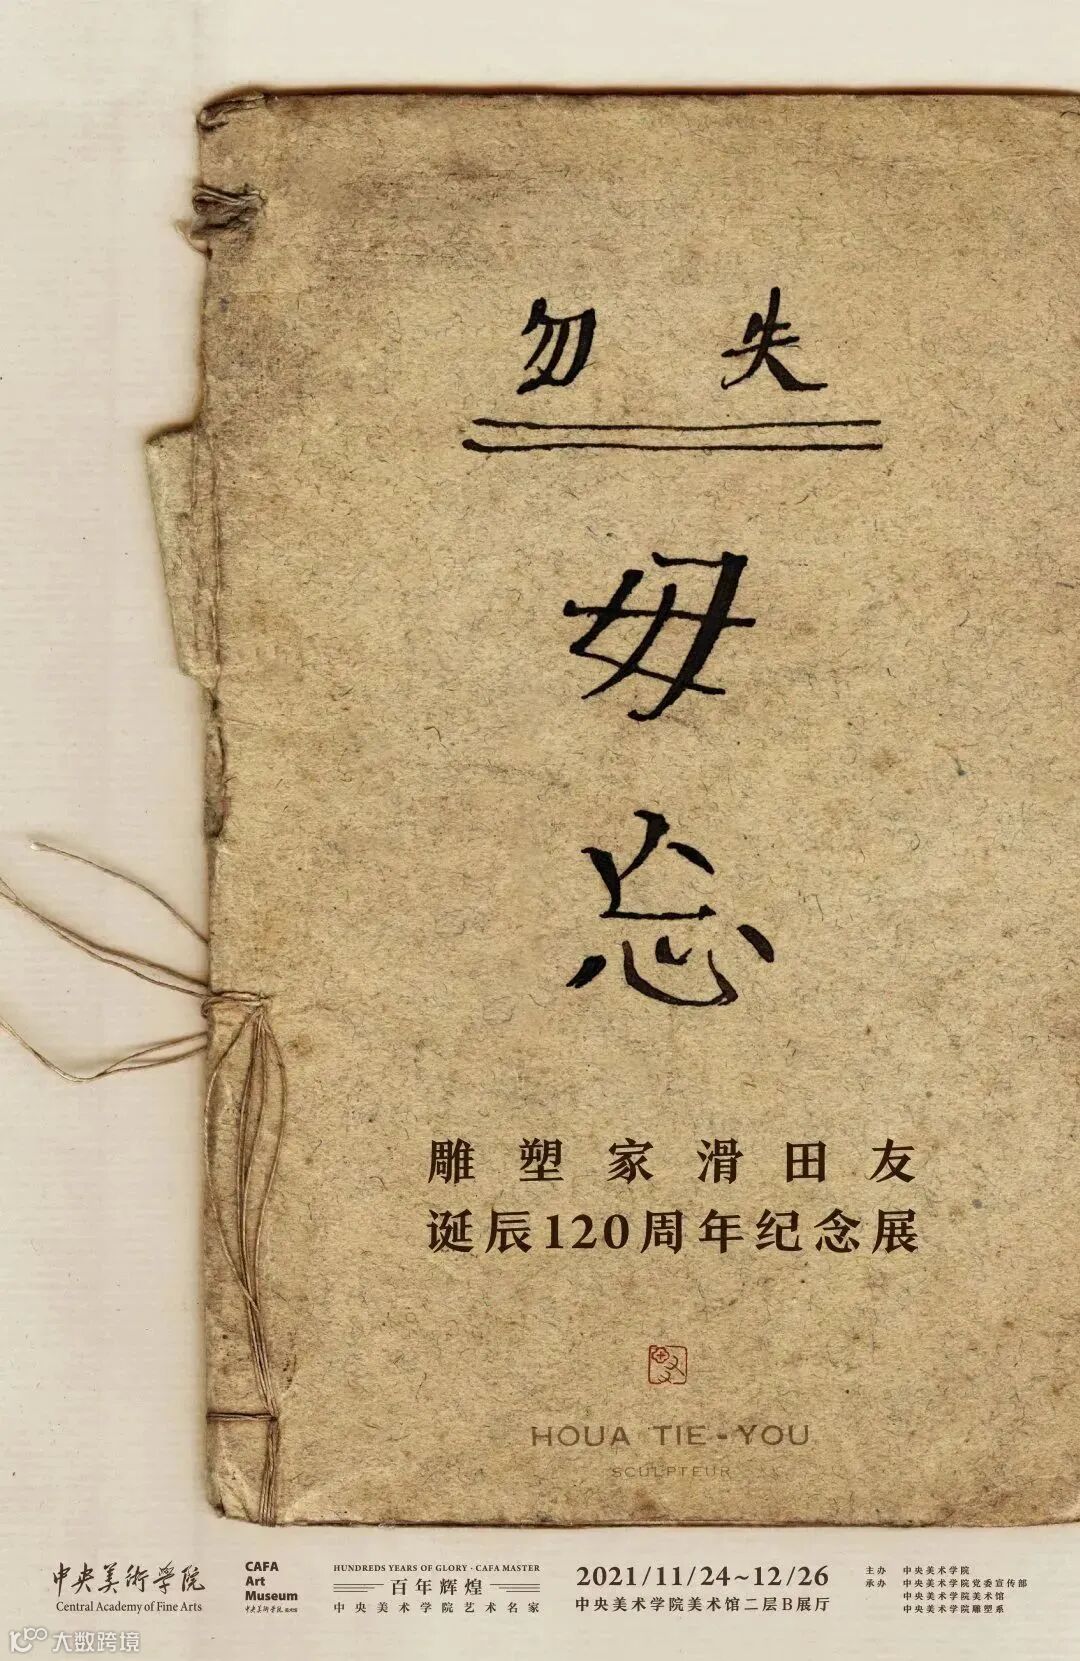 勿 失
毋
忘
雕塑家滑田友
诞辰120周年纪念展
HOUA TIE-YOU
SCULPTEUR
中央美術學院
Central Academy of Fine Arts
CAFA
Art
Museum
中央美術學院美術館
HUNDREDS YEARS OF GLORY · CAFA MASTER
百年辉煌
中央美术学院艺术名家
2021/11/24~12/26
中央美术学院美术馆二层B展厅
主办 中央美术学院
承办 中央美术学院党委宣传部
中央美术学院美术馆
中央美术学院雕塑系
大数跨境